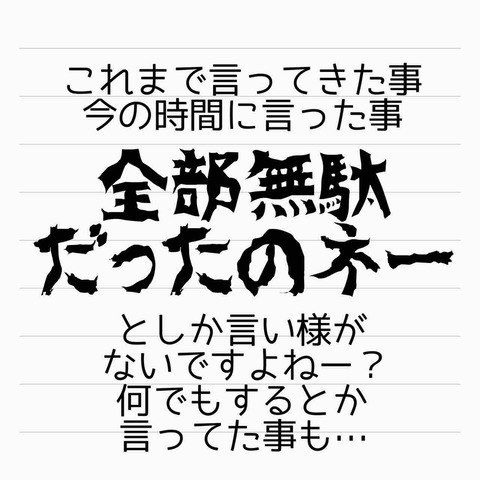 これまで言ってきた事
今の時間に言った事
全部無駄
だったのネー
としか言い様が
ないですよねー？
何でもするとか
言ってた事も…